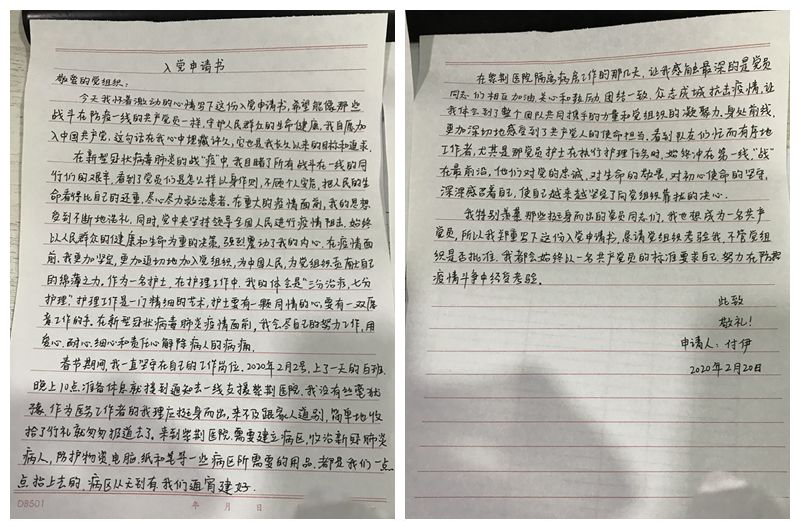 入党申请书
敬爱的党组织:
今天我怀着激动的心情写下这份入党申请书,希望能像那些
战斗在防疫一线的共产党员一样,守护人民群众的生命健康。我自愿加
入中国共产党,这句话在我心中埋藏许久,它也是我长久以来的目标和追求。
在新型冠状病毒肺炎的战“疫”中,我目睹了所有战斗在一线的同
行们的艰辛,看到了党员们是怎么样以身作则,不顾个人安危,把人民的生
命看得比自己的还重,尽心尽力救治患者。在重大的疫情面前,我的思想
受到不断地洗礼。同时,党中央坚持领导全国人民进行疫情阻击,始终
以人民群众的健康和生命为重的决策,强烈震动了我的内心。在疫情面
前,我更加坚定,更加迫切地加入党组织,为中国人民,为党组织贡献出自己
的绵薄之力。作为一名护士,在护理工作中,我的体会是“三分治疗,七分
护理”护理工作是一门精细的艺术,护士要有一颗同情的心,要有一双愿
意工作的手。在新型冠状病毒肺炎疫情面前,我会尽自己的努力工作,用
爱心、耐心、细心和责任心解除病人的病痛。
春节期间,我一直坚守在自己的工作岗位。2020年2月2号,上了一天的白班,
晚上10点,准备休息就接到通知去一线支援紫荆医院,我没有丝毫犹
豫,作为医务工作者的我理应挺身而出,来不及跟家人道别,简单地收
拾了行礼就匆匆报道去了。来到紫荆医院,需要建立病区,收治新冠肺炎
病人,防护物资,电脑,纸和笔等一些病区所需要的用品,都是我们一点一
点抬上去的,病区从无到有,我们通宵建好.
DB501 年 月 日
在紫荆医院隔离病房工作的那几天,让我感触最深的是党员
同志们相互加油、关心和鼓励,团结一致、众志成城抗击疫情,让
我体会到了整个团队共同携手的力量和党组织的凝聚力。身处前线,
更加深切地感受到了共产党人的使命担当。看到队友们忙而有序地
工作着,尤其是那党员护士在执行护理任务时,始终冲在第一线,“战”
在最前沿,他们对党的忠诚、对生命的敬畏、对初心使命的坚守,
深深感召着自己,使自己越来越坚定了向党组织靠拢的决心。
我特别羡慕那些挺身而出的党员同志们,我也想成为一名共产
党员,所以我郑重写下这份入党申请书,恳请党组织考验我,不管党组
织是否批准,我都会始终以一名共产党员的标准要求自己,努力在防控
疫情斗争中经受考验。
此致
敬礼!
申请人:付伊
2020年2月20日